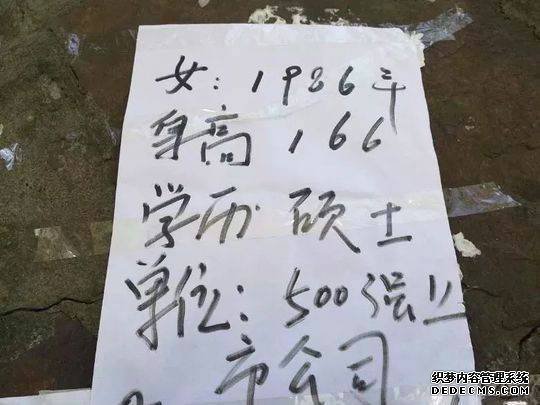 女：1986年
身高 166
学历 硕士
单位：500强上
市公司
织梦内容管理系统
DEDECMS.COM